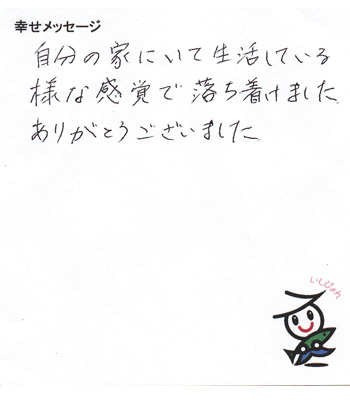 幸せメッセージ
自分の家にいて生活している
様な感覚で落ち着けました
ありがとうございました
いしぴょん